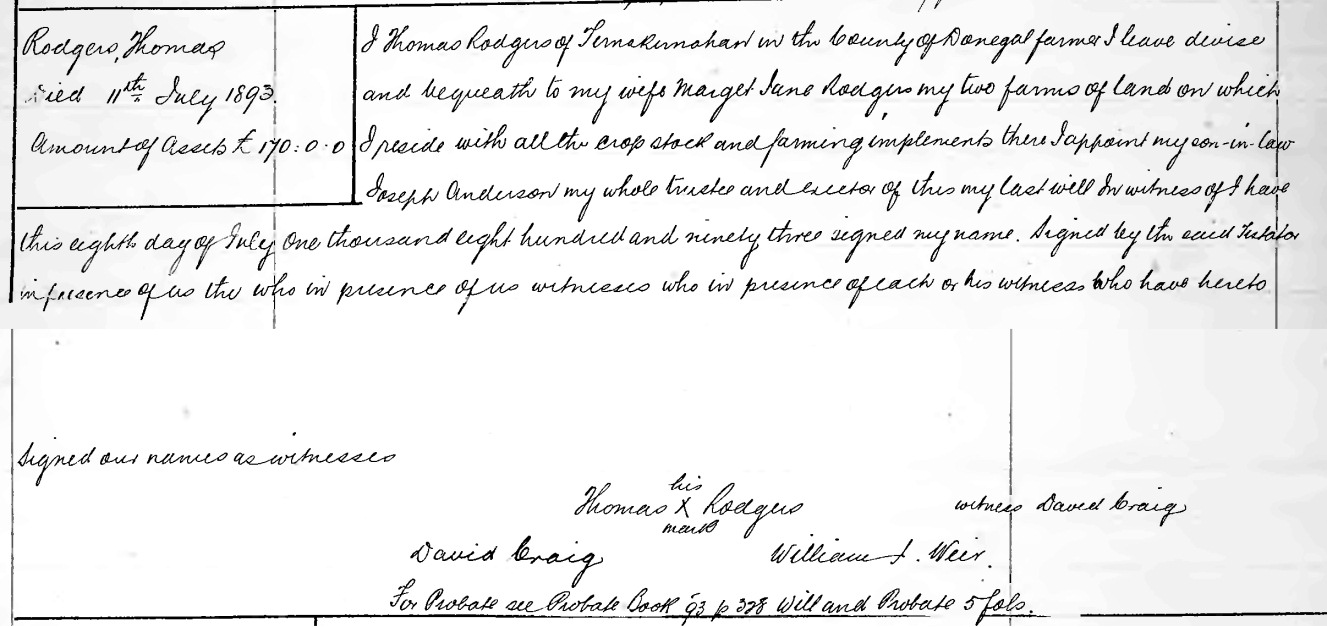 Rodgers, Thomas
died 11th July 1893.
Amount of Assets £170:0.0
I Thomas Rodgers of Ternakernahan in the County of Donegal farmer I leave devise
and bequeath to my wife Marget Jane Rodgers my two farms of land on which
I reside with all the crop stock and farming implements there I appoint my son-in-law
Joseph Anderson my whole trustee and exector of this my last will In witness of I have
this eighth day of July one thousand eight hundred and ninety three signed my name. Signed by the said Testator
in presence of us the who in presence of us witnesses who in presence of each or his witness who have hereto
signed our names as witnesses
his
Thomas X Rodgers witness David Craig
mark
David Craig William J. Weir.
For Probate see Probate Book '93 p 328 Will and Probate 5 fols.